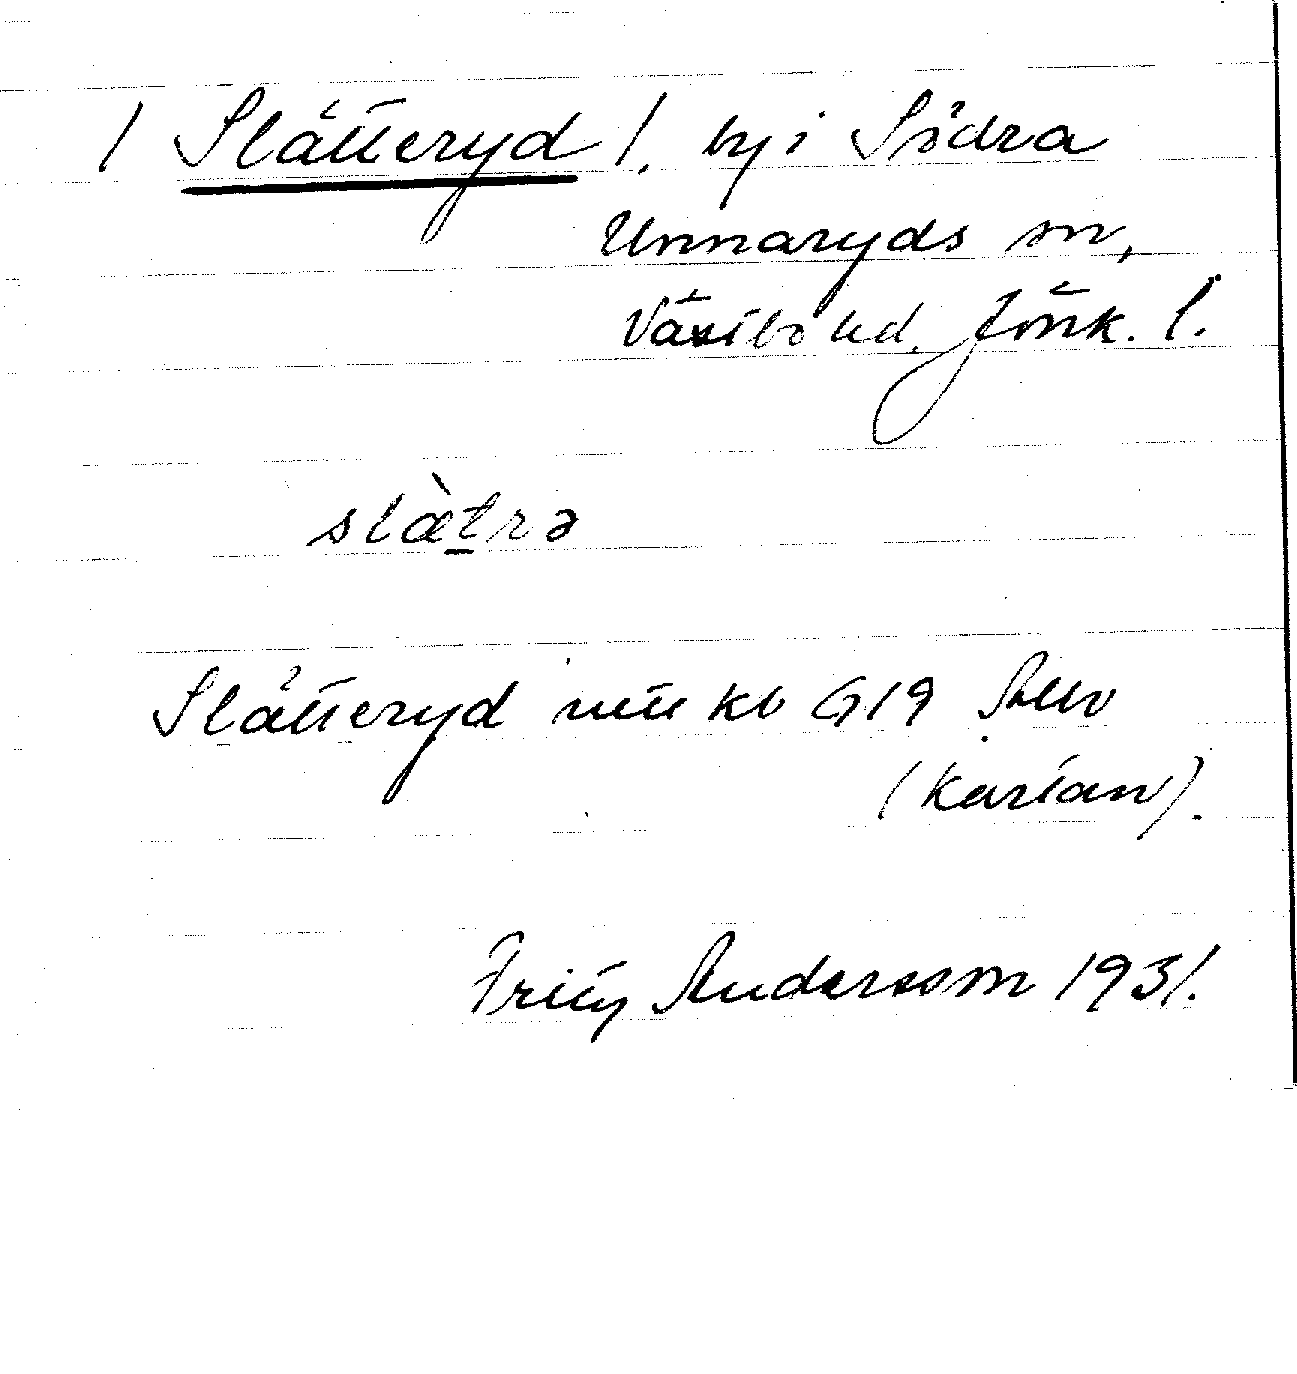 / Slätteryd /. by i Södra
Unnaryds sn,
Västbo hd. Jönk. l.
slæ̀trə
Slätteryd utt kb G19 Allv
(kartan).
Andersson 1931.